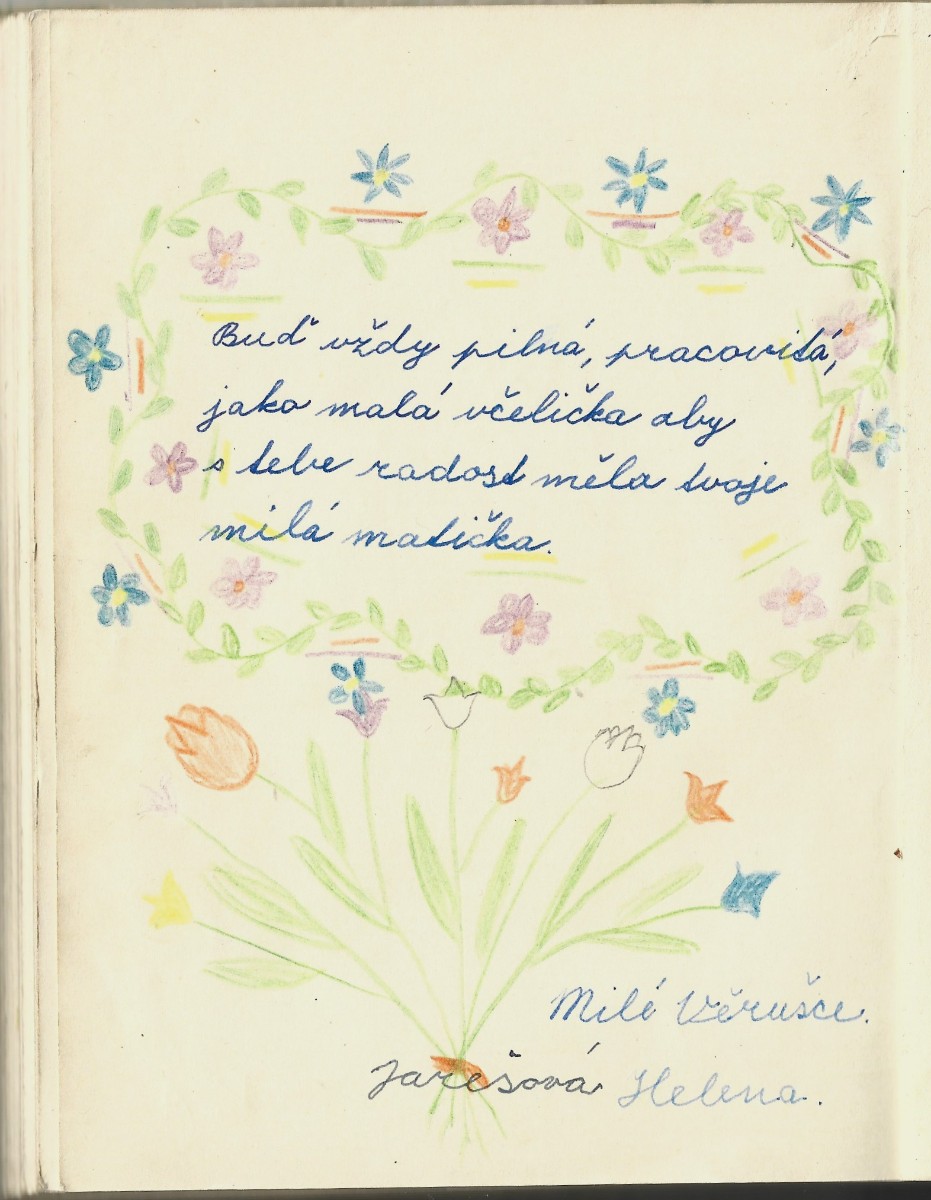 Buď vždy pilná, pracovitá,
jako malá včelička aby
s tebe radost měla tvoje
milá matička.
Milé Věrušce.
Jarešová Helena.